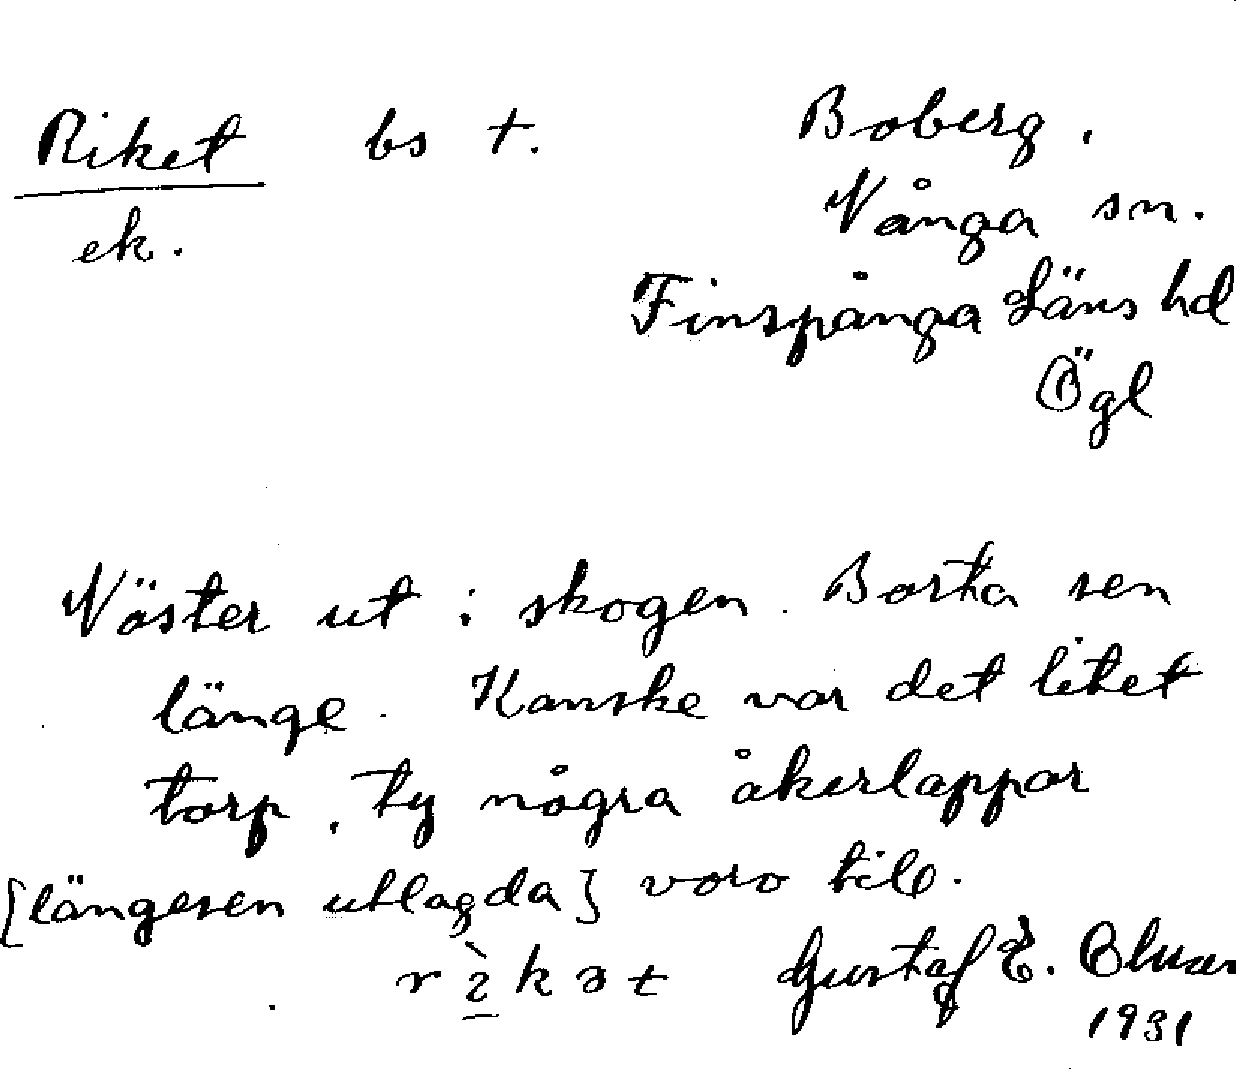 Riket bs t. Boberg.
ek. Vånga sn.
Finspånga Läns hd
Ögl
Väster ut i skogen. Borta sen
länge. Kanske var det litet
torp, ty några åkerlappar
[längesen utlagda] voro till.
Gustaf E.
1931